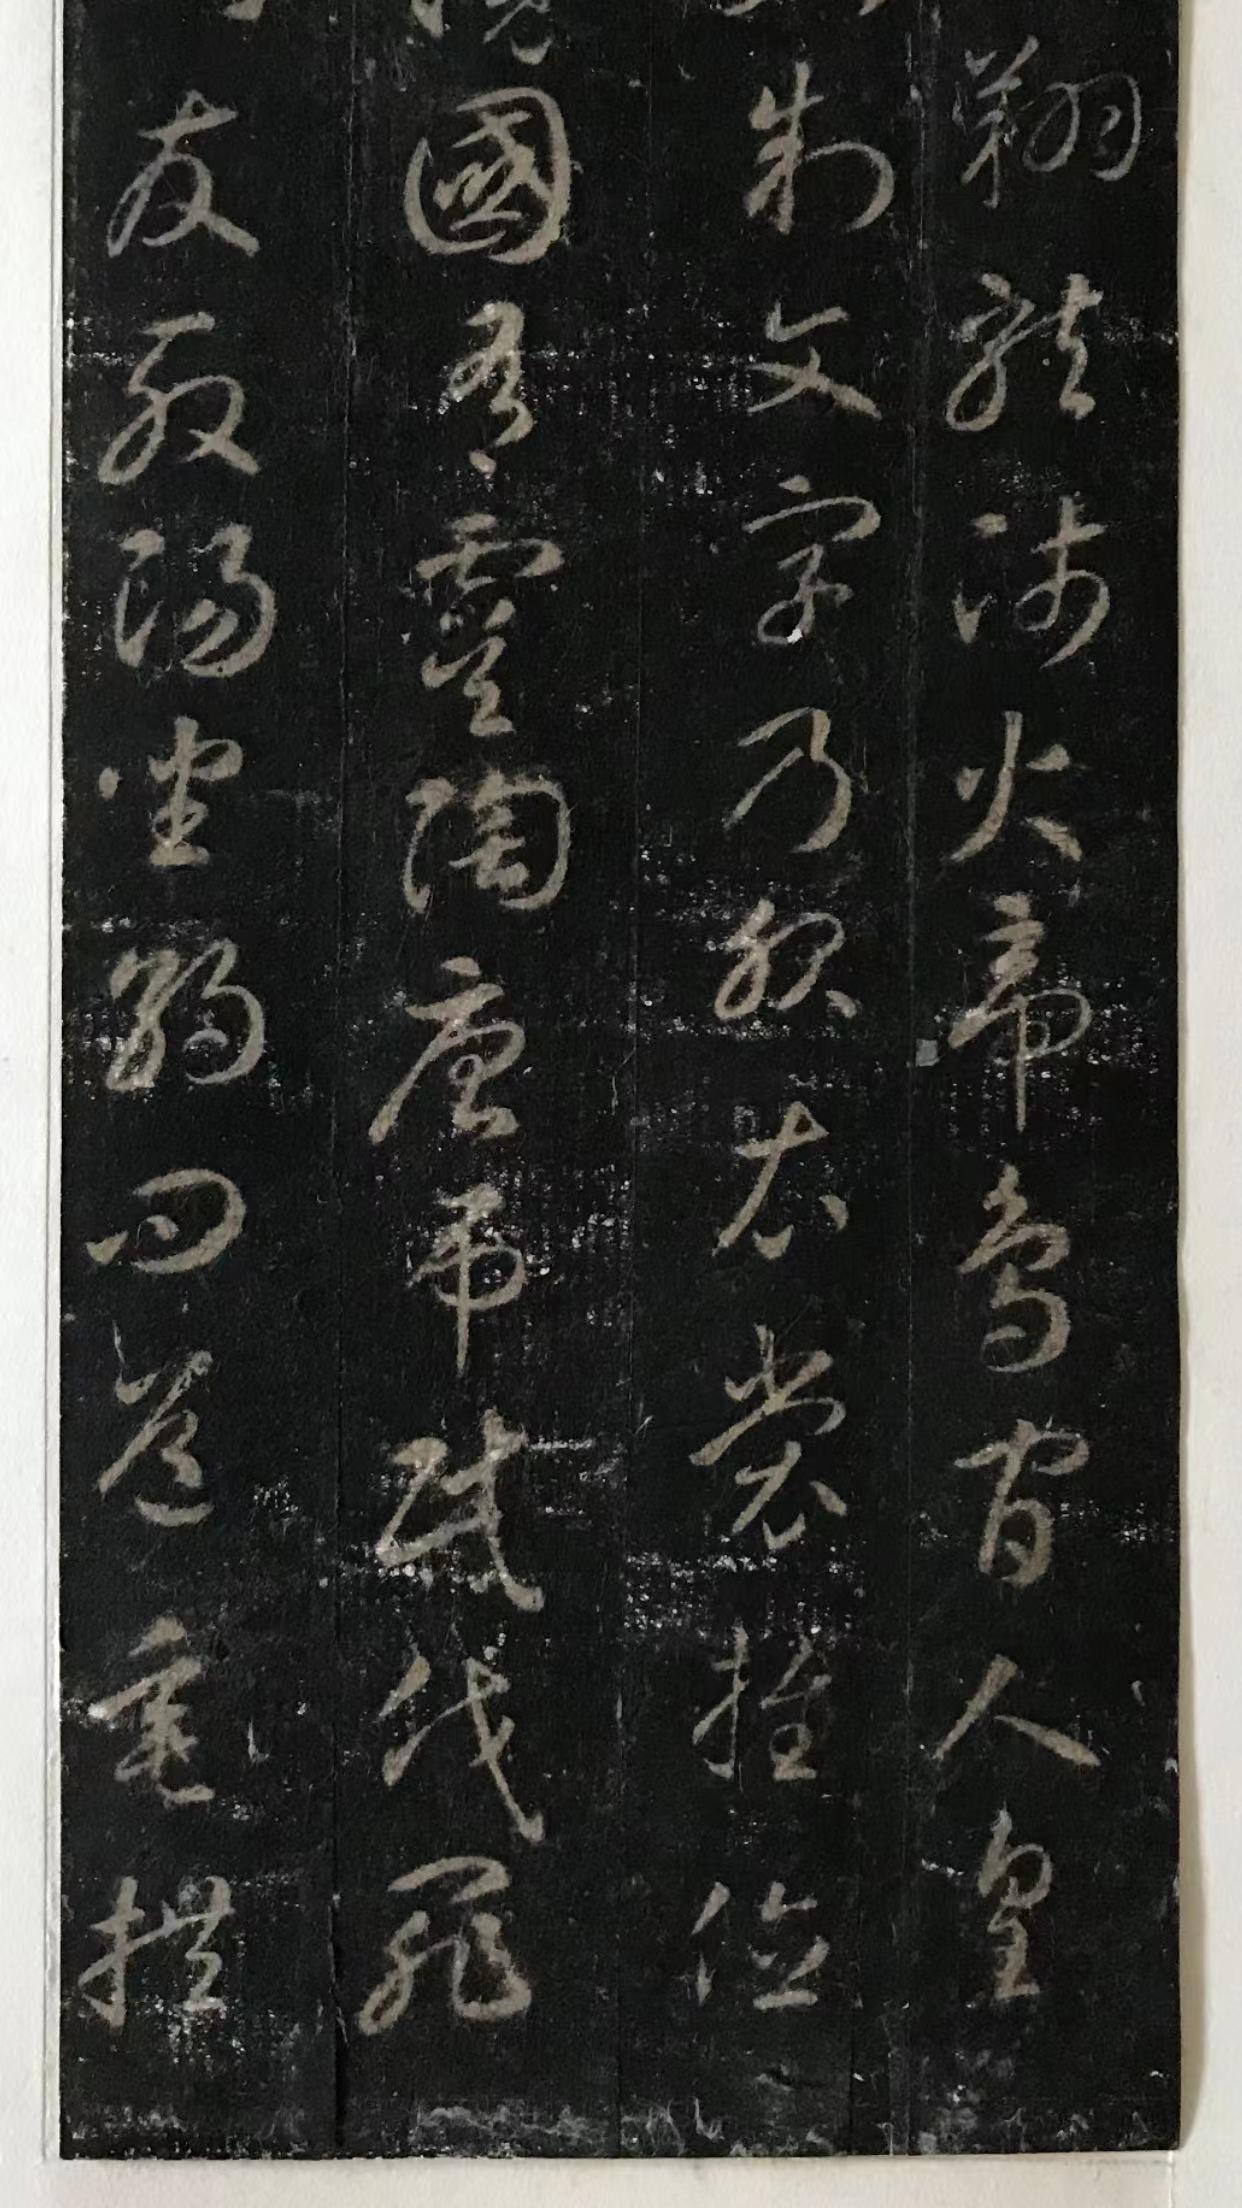 翔龍師火帝鳥官人皇
制文字乃服衣裳推位
國有虞陶唐弔民伐罪
發殷湯坐朝問道垂拱